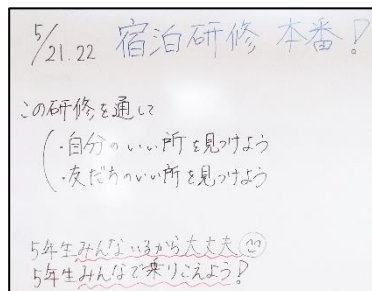 5/21.22 宿泊研修 本番!
この研修を通して
・自分のいい所を見つけよう
・友だちのいい所を見つけよう
5年生みんないるから大丈夫
5年生みんなで乗りこえよう!